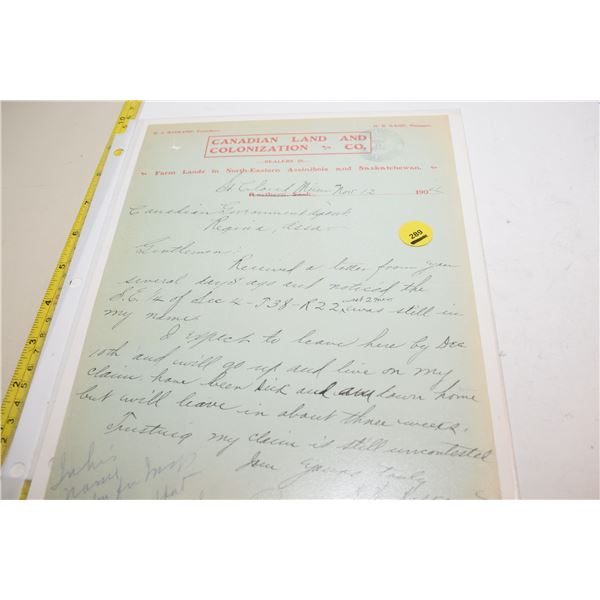 CANADIAN LAND AND
COLONIZATION CO.
DEALERS IN
Farm Lands in North-Eastern Assiniboia and Saskatchewan.
St Cloud Minn Nov 12 1904
Canadian Government Agent
Regina, Assa
Gentlemen:
Received a letter from you
several days ago and noticed the
S.E. 1/4 of Sec 4-T38-R22 w 2 mer was still in
my name.
I expect to leave here by Dec
10th and will go up and live on my
claim, have been sick and am down home
but will leave in about three weeks.
Trusting my claim is still uncontested
I am Yours truly
289
In his
name